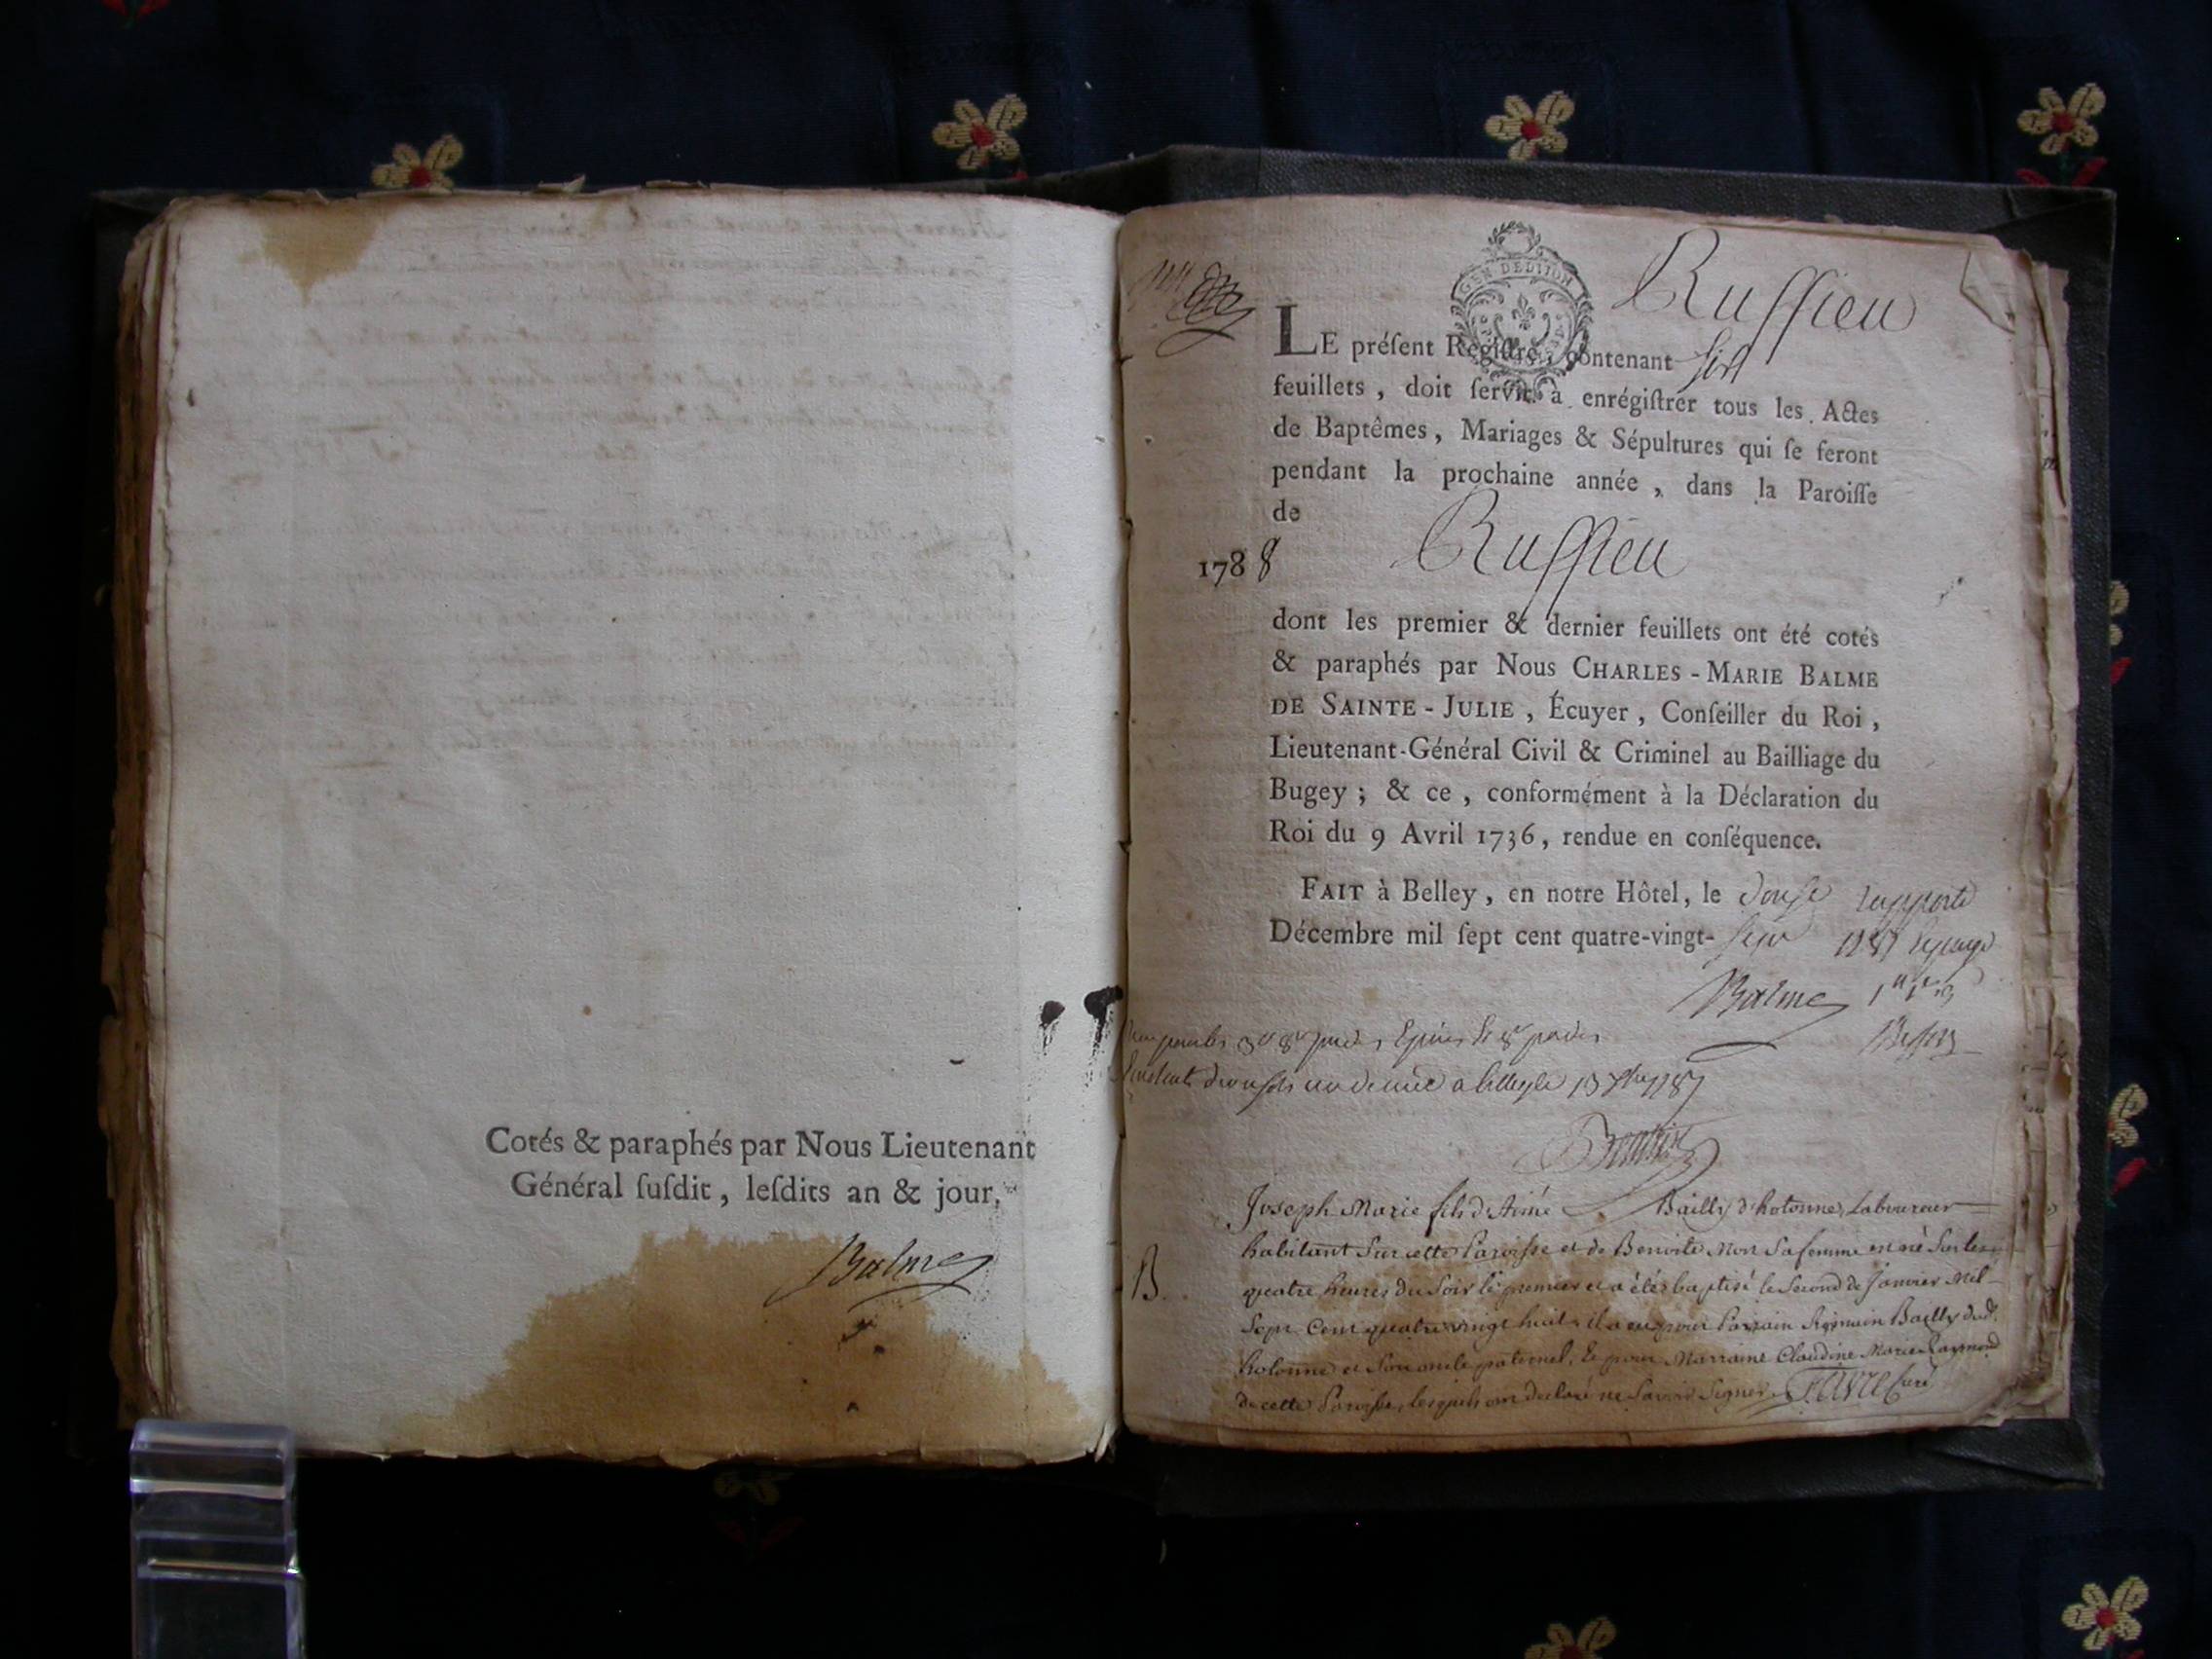 Cotés & paraphés par Nous Lieutenant
Général ſuſdit, leſdits an & jour.
Balme
GEN DE DIJON
Ruffieu
LE préſent Regiſtre, contenant six
feuillets, doit ſervir à enrégiſtrer tous les Actes
de Baptêmes, Mariages & Sépultures qui ſe feront
pendant la prochaine année, dans la Paroiſſe
de
1788 Ruffieu
dont les premier & dernier feuillets ont été cotés
& paraphés par Nous CHARLES-MARIE BALME
DE SAINTE-JULIE, Écuyer, Conſeiller du Roi,
Lieutenant-Général Civil & Criminel au Bailliage du
Bugey; & ce, conformément à la Déclaration du
Roi du 9 Avril 1736, rendue en conſéquence.
FAIT à Belley, en notre Hôtel, le douze
Décembre mil ſept cent quatre-vingt-sept
Balme
Joseph Marie fils d'Aimé Bailly d'hotonne, Laboureur
habitant sur cette Paroisse et de Benoite Mon sa femme est né sur les
B. quatre heures du soir le premier et a étés baptisé le second de Janvier Mil
Sept Cent quatre vingt huit, il a eu pour Parrain Bailly dud.
hotonne et son oncle paternel, & pour Marraine Claudine Marie Raymond
de cette Paroisse, lesquels ont declaré ne Savoir Signer. FAVRE Curé